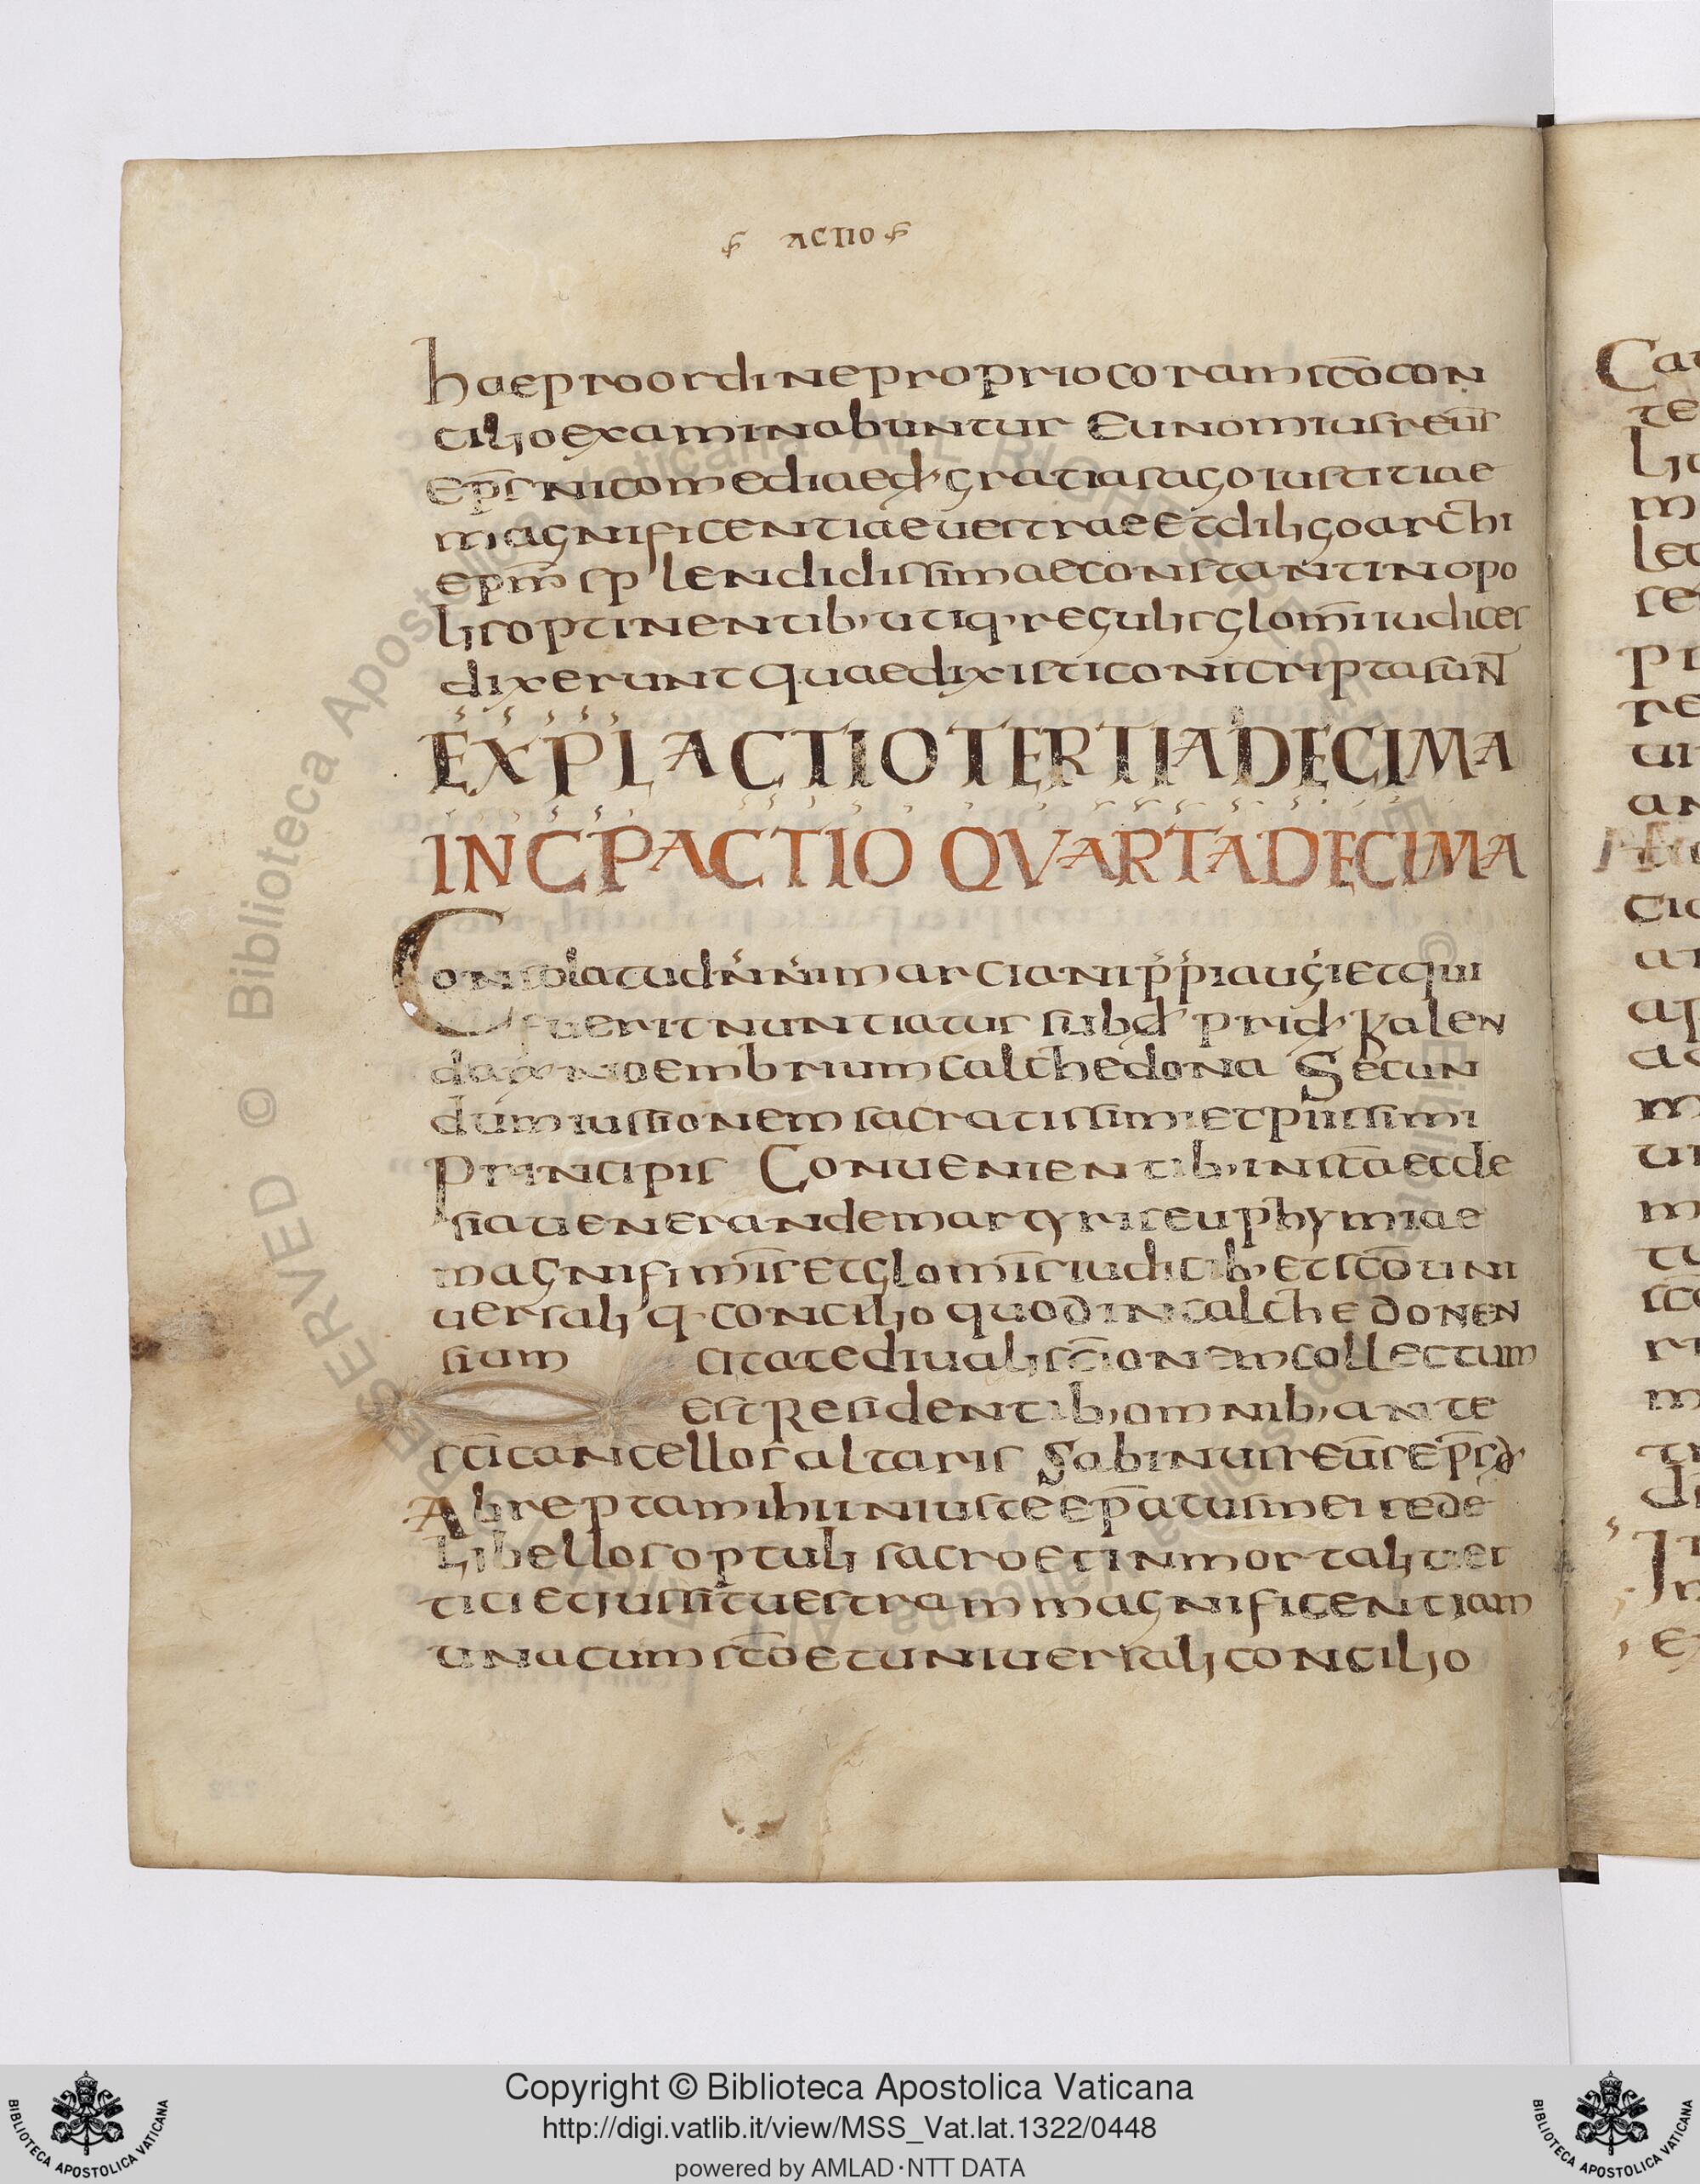 ACTIO
haeproordinepropriocoramsc̄ocon
cilioexaminabuntur Eunomiusreūs
ep̄snicomediaed'gratiasagoiustitiae
magnificentiaeuestraeetdiligoarc̄hi
ep̄m̄ splendidissimaeconstantinopo
lisoptinentib'utiq'regulisglom̄iudices
dixeruntquaedixisticonscriptasun̄t
EXPL ACTIO TERTIADECIMA
INCP ACTIO QVARTADECIMA
Consolatudn̄n̄imarcianip̄p̄iaug̅ietqui
fueritnuntiatus subd' prid' kalen
dasnoembriumcalchedona Secun
dumiussionemsacratissimietpiissimi
principis Conuenientib'insc̄aeccle
siauenerandemartyriseuphymiae
magnifim̄isetglom̄isiudicib'etsc̄ouni
uersaliq' concilio quodincalchedonen
sium citatediualiss̄cionemcollectum
estResidentib'omnib'ante
sc̄icancellosaltaris Sabinusreūsep̄sd'
Abreptamihiiniusteep̄atusmeisede
Libellosoptuli sacroetinmortaliuer
ticietiussituestrammagnificentiam
unacumsc̄oetuniuersaliconcilio
Ca
te
li
m
lec
ser
pi
re
ui
an
tio
at
ap
ac
m
ui
m
tu
sco
ri
m
tr
di
© Biblioteca Apostolica Vaticana ALL RIGHTS RESERVED
Copyright © Biblioteca Apostolica Vaticana
http://digi.vatlib.it/view/MSS_Vat.lat.1322/0448
powered by AMLAD·NTT DATA
BIBLIOTECA APOSTOLICA VATICANA
BIBLIOTECA APOSTOLICA VATICANA